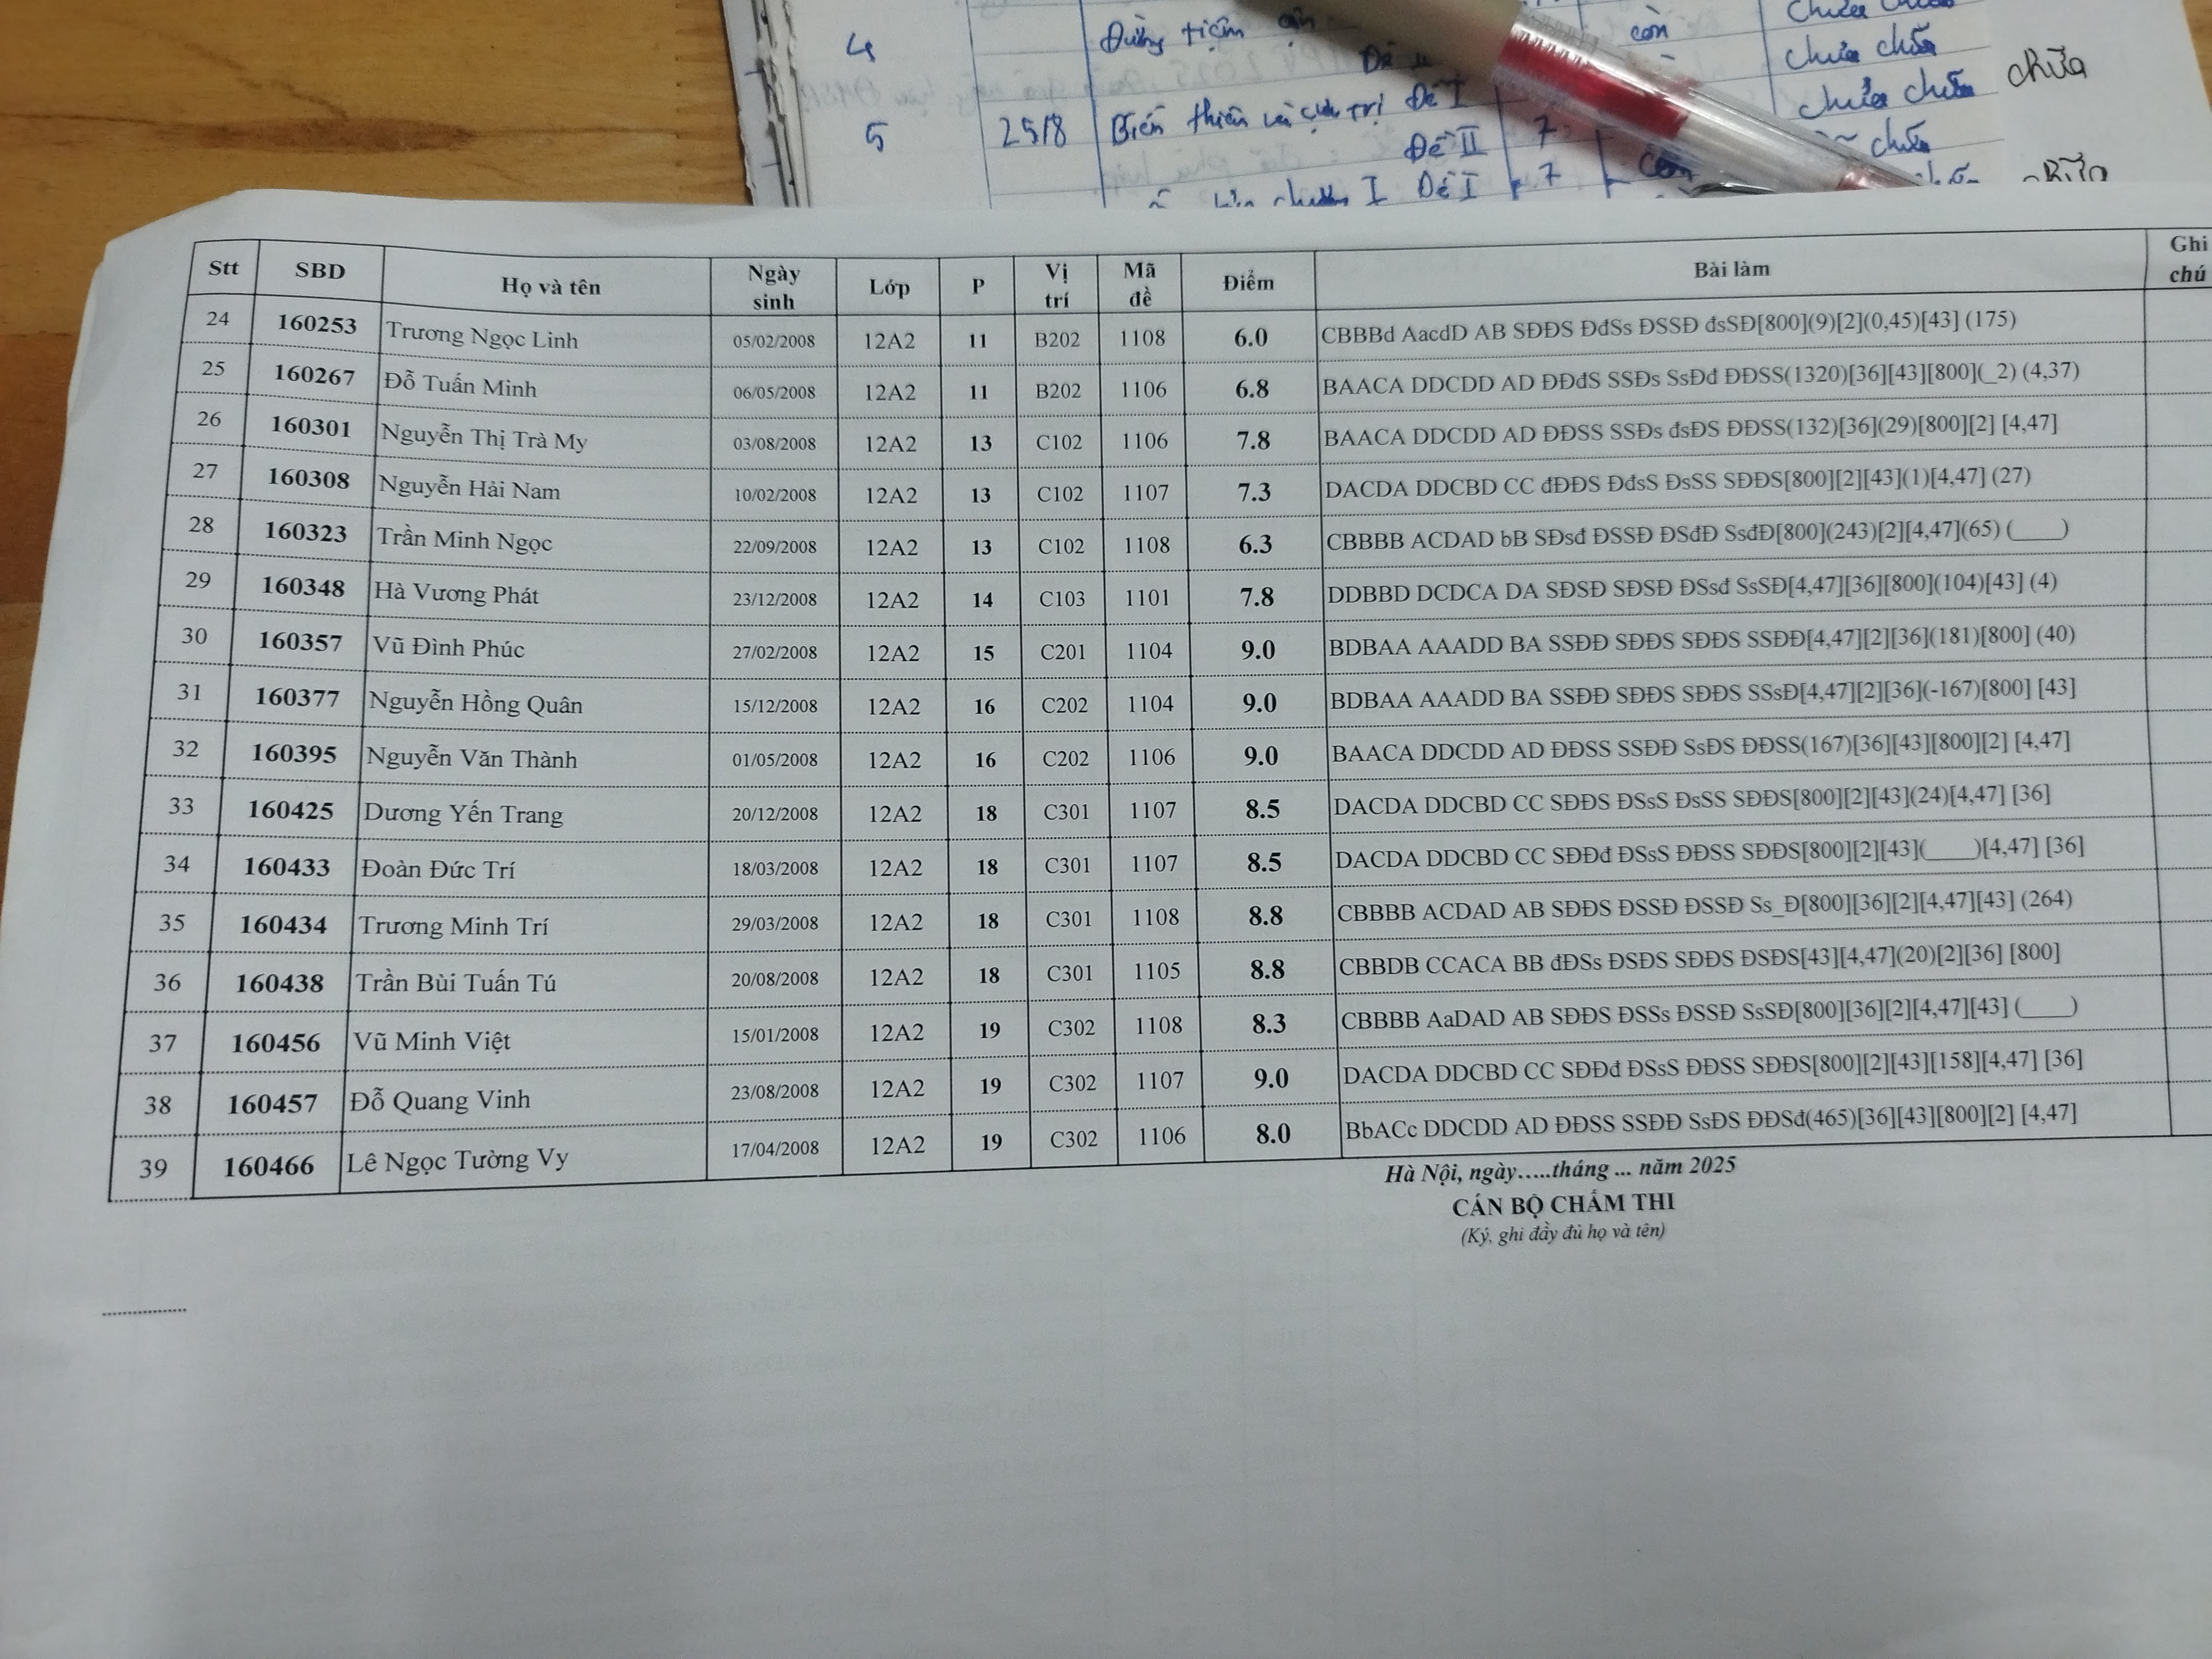 4 Đường tiệm cận còn chưa chữa
5 25/8 Biến thiên và cực trị Đề I chưa chữa chữa
Đề II 7 chữa
chương I Đề I 7 còn
Stt SBD Họ và tên Ngày sinh Lớp P Vị trí Mã đề Điểm Bài làm Ghi chú
24 160253 Trương Ngọc Linh 05/02/2008 12A2 11 B202 1108 6.0 CBBBd AacdD AB SĐĐS ĐđSs ĐSSĐ đsSĐ[800](9)[2](0,45)[43] (175)
25 160267 Đỗ Tuấn Minh 06/05/2008 12A2 11 B202 1106 6.8 BAACA DDCDD AD ĐĐđS SSĐs SsĐđ ĐĐSS(1320)[36][43][800](_2) (4,37)
26 160301 Nguyễn Thị Trà My 03/08/2008 12A2 13 C102 1106 7.8 BAACA DDCDD AD ĐĐSS SSĐs đsĐS ĐĐSS(132)[36](29)[800][2] [4,47]
27 160308 Nguyễn Hải Nam 10/02/2008 12A2 13 C102 1107 7.3 DACDA DDCBD CC đĐĐS ĐđsS ĐsSS SĐĐS[800][2][43](1)[4,47] (27)
28 160323 Trần Minh Ngọc 22/09/2008 12A2 13 C102 1108 6.3 CBBBB ACDAD bB SĐsđ ĐSSĐ ĐSđĐ SsđĐ[800](243)[2][4,47](65) (____)
29 160348 Hà Vương Phát 23/12/2008 12A2 14 C103 1101 7.8 DDBBD DCDCA DA SĐSĐ SĐSĐ ĐSsđ SsSĐ[4,47][36][800](104)[43] (4)
30 160357 Vũ Đình Phúc 27/02/2008 12A2 15 C201 1104 9.0 BDBAA AAADD BA SSĐĐ SĐĐS SĐĐS SSĐĐ[4,47][2][36](181)[800] (40)
31 160377 Nguyễn Hồng Quân 15/12/2008 12A2 16 C202 1104 9.0 BDBAA AAADD BA SSĐĐ SĐĐS SĐĐS SSsĐ[4,47][2][36](-167)[800] [43]
32 160395 Nguyễn Văn Thành 01/05/2008 12A2 16 C202 1106 9.0 BAACA DDCDD AD ĐĐSS SSĐĐ SsĐS ĐĐSS(167)[36][43][800][2] [4,47]
33 160425 Dương Yến Trang 20/12/2008 12A2 18 C301 1107 8.5 DACDA DDCBD CC SĐĐS ĐSsS ĐsSS SĐĐS[800][2][43](24)[4,47] [36]
34 160433 Đoàn Đức Trí 18/03/2008 12A2 18 C301 1107 8.5 DACDA DDCBD CC SĐĐđ ĐSsS ĐĐSS SĐĐS[800][2][43](____)[4,47] [36]
35 160434 Trương Minh Trí 29/03/2008 12A2 18 C301 1108 8.8 CBBBB ACDAD AB SĐĐS ĐSSĐ ĐSSĐ Ss_Đ[800][36][2][4,47][43] (264)
36 160438 Trần Bùi Tuấn Tú 20/08/2008 12A2 18 C301 1105 8.8 CBBDB CCACA BB đĐSs ĐSĐS SĐĐS ĐSĐS[43][4,47](20)[2][36] [800]
37 160456 Vũ Minh Việt 15/01/2008 12A2 19 C302 1108 8.3 CBBBB AaDAD AB SĐĐS ĐSSs ĐSSĐ SsSĐ[800][36][2][4,47][43] (____)
38 160457 Đỗ Quang Vinh 23/08/2008 12A2 19 C302 1107 9.0 DACDA DDCBD CC SĐĐđ ĐSsS ĐĐSS SĐĐS[800][2][43][158][4,47] [36]
39 160466 Lê Ngọc Tường Vy 17/04/2008 12A2 19 C302 1106 8.0 BbACc DDCDD AD ĐĐSS SSĐĐ SsĐS ĐĐSđ(465)[36][43][800][2] [4,47]
Hà Nội, ngày.....tháng ... năm 2025
CÁN BỘ CHẤM THI
(Ký, ghi đầy đủ họ và tên)